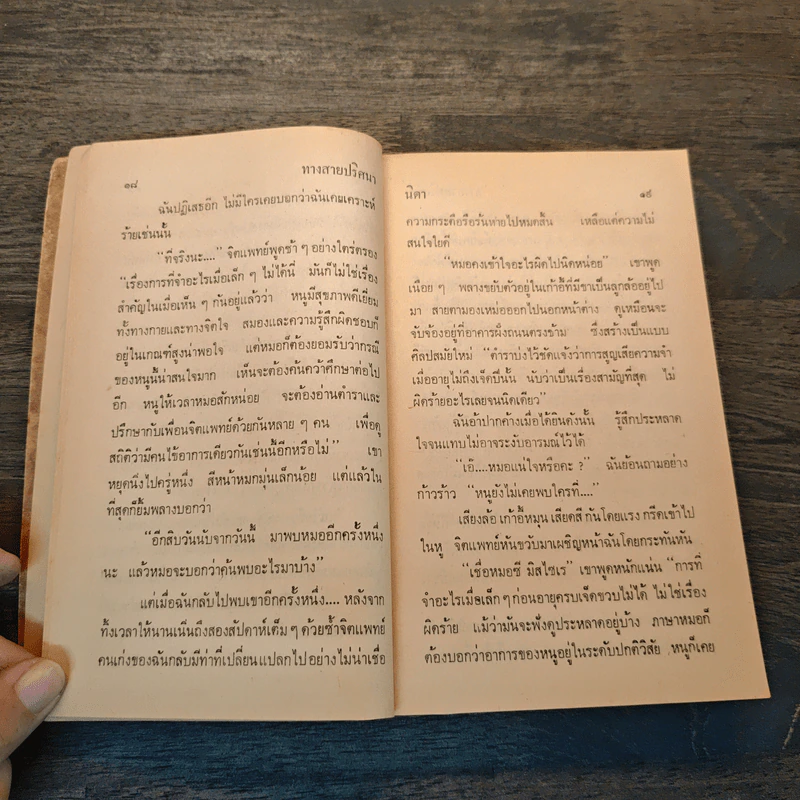 ทางสายปริศนา
๑๘
ฉันปฏิเสธอีก ไม่มีใครเคยบอกว่าฉันเคยเคราะห์
ร้ายเช่นนั้น
“ที่จริงนะ....” จิตแพทย์พูดช้า ๆ อย่างไตร่ตรอง
“เรื่องการที่จำอะไรเมื่อเล็ก ๆ ไม่ได้นี่ มันก็ไม่ใช่เรื่อง
สำคัญในเมื่อเห็น ๆ กันอยู่แล้วว่า หนูมีสุขภาพดีเยี่ยม
ทั้งทางกายและทางจิตใจ สมองและความรู้สึกผิดชอบก็
อยู่ในเกณฑ์สูงน่าพอใจ แต่หมอก็ต้องยอมรับว่ากรณี
ของหนูนี้น่าสนใจมาก เห็นจะต้องค้นคว้าศึกษาต่อไป
อีก หนูให้เวลาหมอสักหน่อย จะต้องอ่านตำราและ
ปรึกษากับเพื่อนจิตแพทย์ด้วยกันหลาย ๆ คน เพื่อดู
สถิติว่ามีคนไข้อาการเดียวกันเช่นนี้อีกหรือไม่” เขา
หยุดนิ่งไปครู่หนึ่ง สีหน้าหมกมุ่นเล็กน้อย แต่แล้วใน
ที่สุดก็ยิ้มพลางบอกว่า
“อีกสิบวันนับจากวันนี้ มาพบหมออีกครั้งหนึ่ง
นะ แล้วหมอจะบอกว่าค้นพบอะไรมาบ้าง”
แต่เมื่อฉันกลับไปพบเขาอีกครั้งหนึ่ง.... หลังจาก
ทิ้งเวลาให้นานเนิ่นถึงสองสัปดาห์เต็ม ๆ ด้วยซ้ำจิตแพทย์
คนเก่งของฉันกลับมีท่าทีเปลี่ยนแปลกไปอย่างไม่น่าเชื่อ
นิดา
๑๙
ความกระตือรือร้นหายไปหมดสิ้น เหลือแต่ความไม่
สนใจไยดี
“หมอคงเข้าใจอะไรผิดไปนิดหน่อย” เขาพูด
เนือย ๆ พลางขยับตัวอยู่ในเก้าอี้ที่มีขาเป็นลูกล้ออยู่ไป
มา สายตามองเหม่อออกไปนอกหน้าต่าง ดูเหมือนจะ
จับจ้องอยู่ที่อาคารฝั่งถนนตรงข้าม ซึ่งสร้างเป็นแบบ
ศิลปสมัยใหม่ “ตำราบ่งไว้ชัดแจ้งว่าการสูญเสียความจำ
เมื่ออายุไม่ถึงเจ็ดปีนั้น นับว่าเป็นเรื่องสามัญที่สุด ไม่
ผิดร้ายอะไรเลยจนนิดเดียว”
ฉันอ้าปากค้างเมื่อได้ยินดังนั้น รู้สึกประหลาด
ใจจนแทบไม่อาจระงับอารมณ์ไว้ได้
“เอ๊....หมอแน่ใจหรือคะ ?” ฉันย้อนถามอย่าง
ก้าวร้าว “หนูยังไม่เคยพบใครที่....”
เสียงล้อ เก้าอี้หมุน เสียดสี กันโดยแรง กรีดเข้าไป
ในหู จิตแพทย์หันขวับมาเผชิญหน้าฉันโดยกระทันหัน
“เชื่อหมอซี มิสไซเร” เขาพูดหนักแน่น “การที่
จำอะไรเมื่อเล็ก ๆ ก่อนอายุครบเจ็ดขวบไม่ได้ ไม่ใช่เรื่อง
ผิดร้าย แม้ว่ามันจะฟังดูประหลาดอยู่บ้าง ภาษาหมอก็
ต้องบอกว่าอาการของหนูอยู่ในระดับปกติวิสัย หนูก็เคย